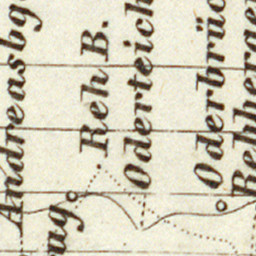 Andreasbg
Reh B.
Oderteich
Oderbrüc
Rehberger
ug